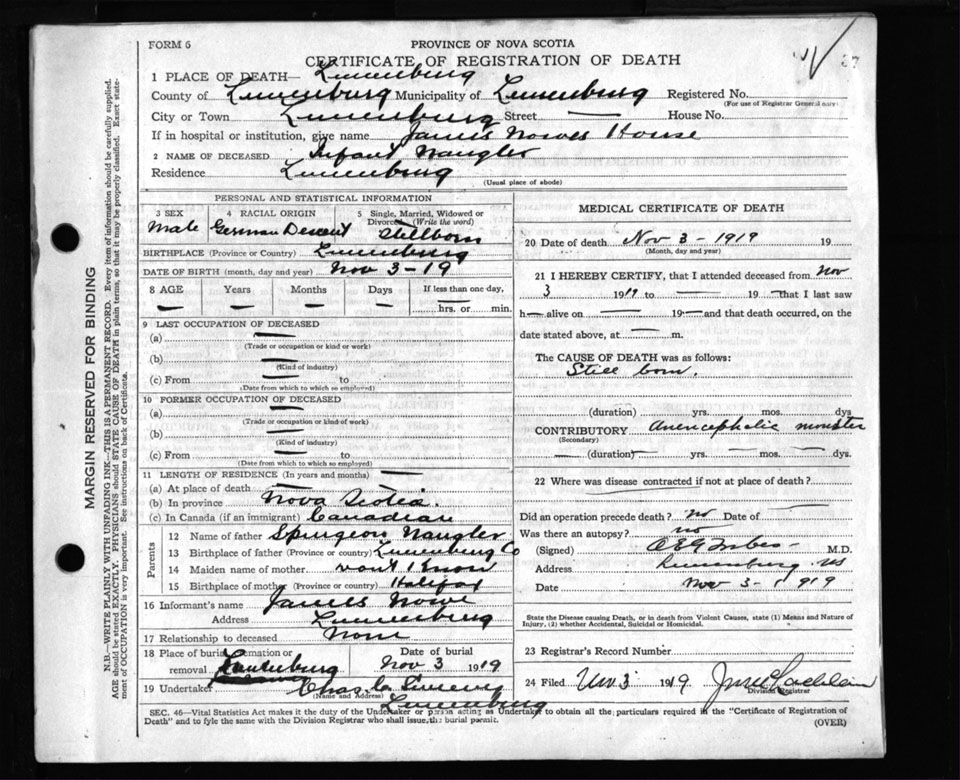 FORM 6
PROVINCE OF NOVA SCOTIA
CERTIFICATE OF REGISTRATION OF DEATH
37
1 PLACE OF DEATH— Lunenburg
County of Lunenburg Municipality of Lunenburg Registered No.
(For use of Registrar General only)
City or Town Lunenburg Street — House No.
If in hospital or institution, give name James Nowes House
2 NAME OF DECEASED Infant Naugler
Residence Lunenburg
(Usual place of abode)
PERSONAL AND STATISTICAL INFORMATION
3 SEX
Male
4 RACIAL ORIGIN
German Descent
5 Single, Married, Widowed or
Divorced (Write the word)
Stillborn
BIRTHPLACE (Province or Country) Lunenburg
DATE OF BIRTH (month, day and year) Nov 3-19
8 AGE Years Months Days If less than one day,
— — — — — hrs. or min.
9 LAST OCCUPATION OF DECEASED
(a) —
(Trade or occupation or kind or work)
(b) —
(Kind of industry)
(c) From — to
(Date from which to which so employed)
10 FORMER OCCUPATION OF DECEASED
(a) —
(Trade or occupation or kind of work)
(b) —
(Kind of industry)
(c) From — to
(Date from which to which so employed)
11 LENGTH OF RESIDENCE (In years and months) —
(a) At place of death —
(b) In province Nova Scotia.
(c) In Canada (if an immigrant) Canadian
Parents
12 Name of father Spurgeon Naugler
13 Birthplace of father (Province or country) Lunenburg Co
14 Maiden name of mother. Don't Know
15 Birthplace of mother (Province or country) Halifax
16 Informant's name James Nowe
Address Lunenburg
17 Relationship to deceased None
18 Place of burial, cremation or
removal Lunenburg
Date of burial
Nov 3 1919
19 Undertaker Chas
(Name and Address)
Lunenburg
MEDICAL CERTIFICATE OF DEATH
20 Date of death Nov 3 - 1919 19
(Month, day and year)
21 I HEREBY CERTIFY, that I attended deceased from Nov
3 1919 to — 19 — that I last saw
h— alive on — 19— and that death occurred, on the
date stated above, at — m.
The CAUSE OF DEATH was as follows:
Still born.
(duration) yrs. mos. dys
CONTRIBUTORY Anencephalic monster
(Secondary)
— (duration) — yrs. — mos. — dys.
22 Where was disease contracted if not at place of death?
Did an operation precede death? no Date of —
Was there an autopsy? no
(Signed) Forbes M.D.
Address Lunenburg NS
Date Nov 3 - 1919
State the Disease causing Death, or in death from Violent Causes, state (1) Means and Nature of
Injury, (2) whether Accidental, Suicidal or Homicidal.
23 Registrar's Record Number
24 Filed Nov 3 1919
Division Registrar
SEC. 46—Vital Statistics Act makes it the duty of the Undertaker or person acting as Undertaker to obtain all the particulars required in the "Certificate of Registration of
Death" and to fyle the same with the Division Registrar who shall issue the burial permit.
(OVER)
MARGIN RESERVED FOR BINDING
N.B.—WRITE PLAINLY WITH UNFADING INK—THIS IS A PERMANENT RECORD. Every item of information should be carefully supplied.
AGE should be stated EXACTLY. PHYSICIANS should STATE CAUSE OF DEATH in plain terms, so that it may be properly classified. Exact state-
ment of OCCUPATION is very important. See instructions on back of Certificate.